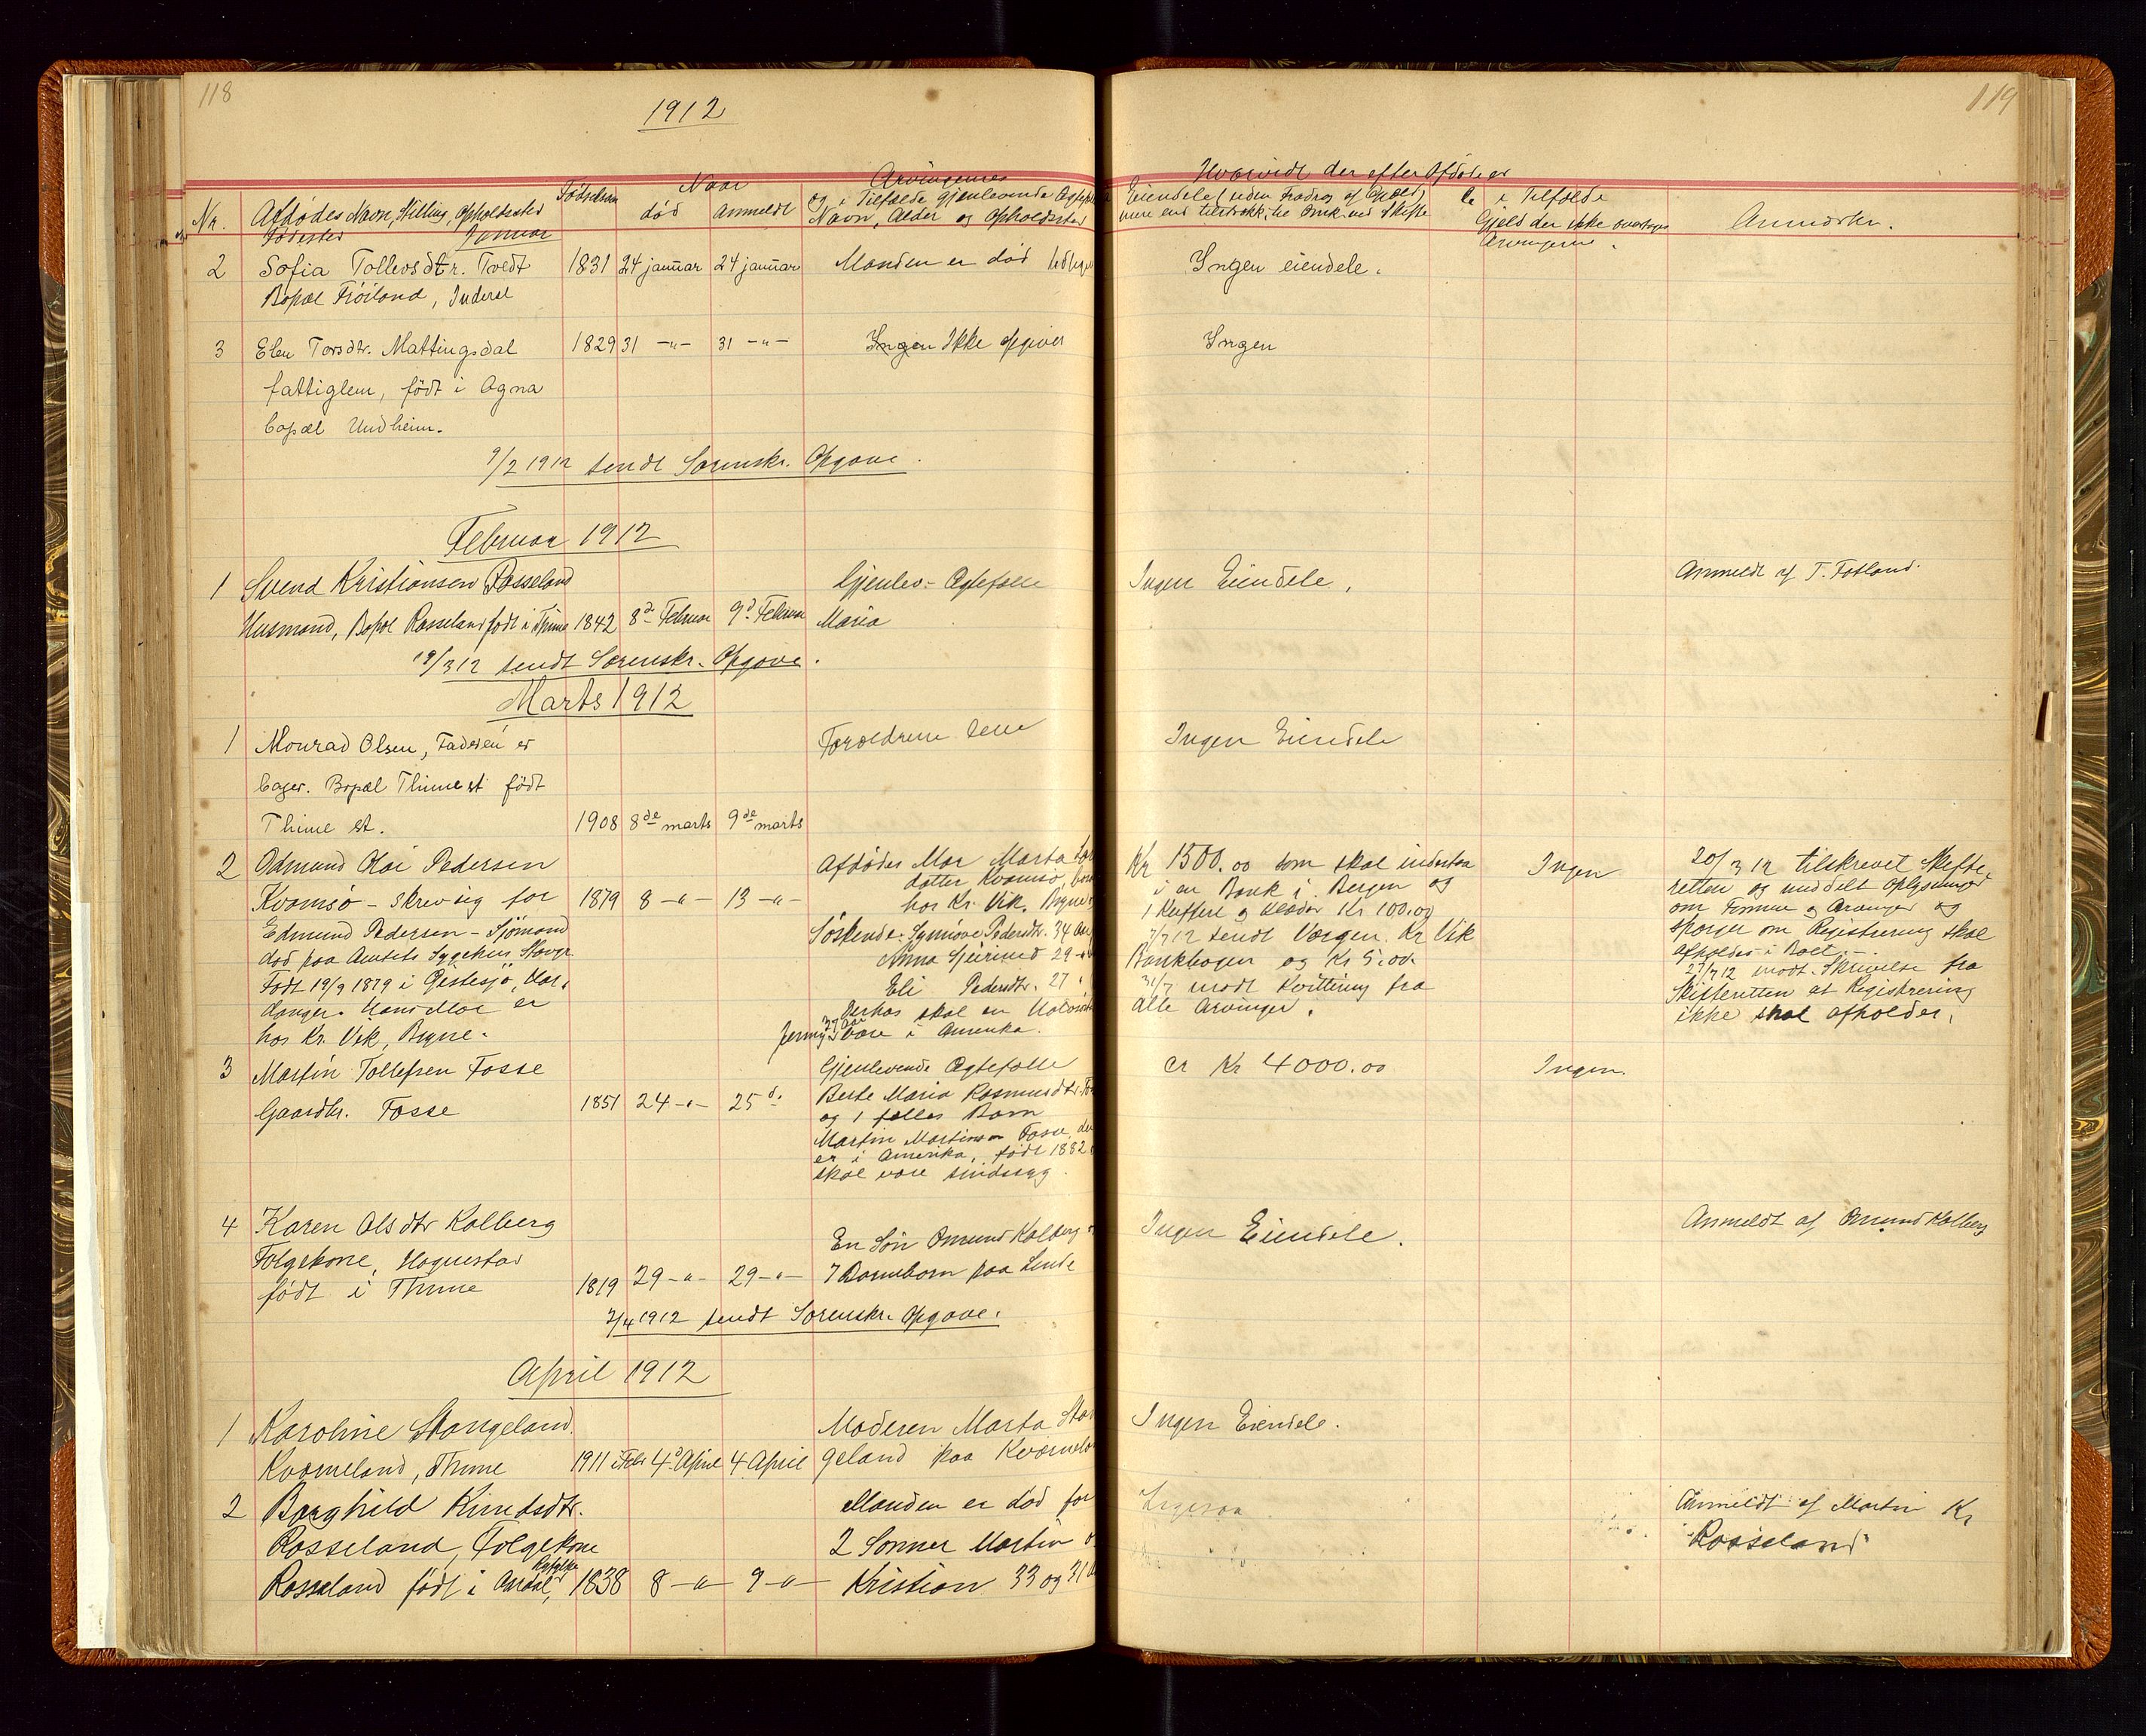 118
1912
Naar
Nr.
Afdødes Navn, Stilling, Opholdssted
Fødested
Januar
død
Anmeldt
Arvingernes
og i Tilfælde Gjenlevende
Navn, Alder og Opholdssted
2 Sofia Tollevsdtr. Tvedt 1831 24 januar 24 januar Manden er død
Bopæl Frøiland,
3 Elen Torsdtr. Mattingsdal 1829 31 -"- 31 -"- Ingen Ikke opgivet
fattiglem, født i Ogna
bopæl Undheim.
9/2 1912 sendt Sorenskr. Opgave.
Februar 1912
1 Svend Kristiansen Rosseland Gjenlev. Ægtefælle
Husmand, Bopæl Rosseland født i Thime 1842 8de Februar 9d Februar Maria
18/3 12 sendt Sorenskr. Opgave.
Marts 1912
1 Monrad Olsen, Faderen er Forældrene leve
bager. Bopæl Thime st født
Thime st. 1908 8de marts 9de marts
2 Odmund Olai Pedersen Afdødes Mor Marta
Kvamsø - skrev sig for 1879 8 -"- 13 -"- datter Kvamsø
Edmund Pedersen - Sjømand hos Kr. Vik. Bryne
død paa Amtets Sygehus Stavgr. Søskende: Synnøve Pedersdtr. 34
Født 19/9 1879 i Anna 29
Hans Mor er Eli Pedersdtr. 27
hos Kr. Vik, Bryne. skal en
Jenny 37 Aar være i Amerika.
3 Martin Tollefsen Fosse Gjenlevende Ægtefælle
Gaardbr. Fosse 1851 24 -"- 25 d. Berte Maria Rasmusdtr.
og 1 fælles Barn
Martin Martinsen Fosse,
er i Amerika, født 1882
skal være sindssyg.
4 Karen Olsdtr Kalberg En Søn Omund Kalberg
Folgekone, Hognestad 7 Barnebarn paa Lende
født i Thime 1819 29 -"- 29 -"-
2/4 1912 sendt Sorenskr. Opgave.
April 1912
1 Karoline Stangeland Moderen Marta Stan
Kværneland, Thime 1911 4d April 4 April geland paa
2 Borghild Knudsdtr. Manden er død for
Rosseland, Folgekone 2 Sønner Martin
Rosseland født i 1838 8 -"- 9 -"- Kristian 33 og 31
119
Hvorvidt der efter Afdøde er
Eiendele uden Fradrag af Gjæld
i Tilfælde
Gjæld der ikke overtages
Arvingerne.
Anmærkn.
Ingen eiendele.
Ingen
Ingen Eiendele. Anmeldt af T. Fotland.
Ingen Eiendele
Kr 1500.00 som skal indestaa Ingen 20/3 12 tilskrevet Skifte
i en Bank i Bergen og retten og meddelt oplysninger
1 Kuffert og klæder Kr 100.00 om Formue og Arvinger og
7/7 12 sendt Værgen Kr Vik spørger om Registrering skal
Bankbogen og Kr 5.00. afholdes i Boet.
31/7 modt Kvittering fra 27/7 12 modt. Skrivelse fra
alle Arvinger. Skifteretten at Registrering
ikke skal afholdes.
ca Kr 4000.00 Ingen
Ingen Eiendele. Anmeldt af Omund Kalberg
Ingen Eiendele.
Anmeldt af Martin Kr
Rosseland